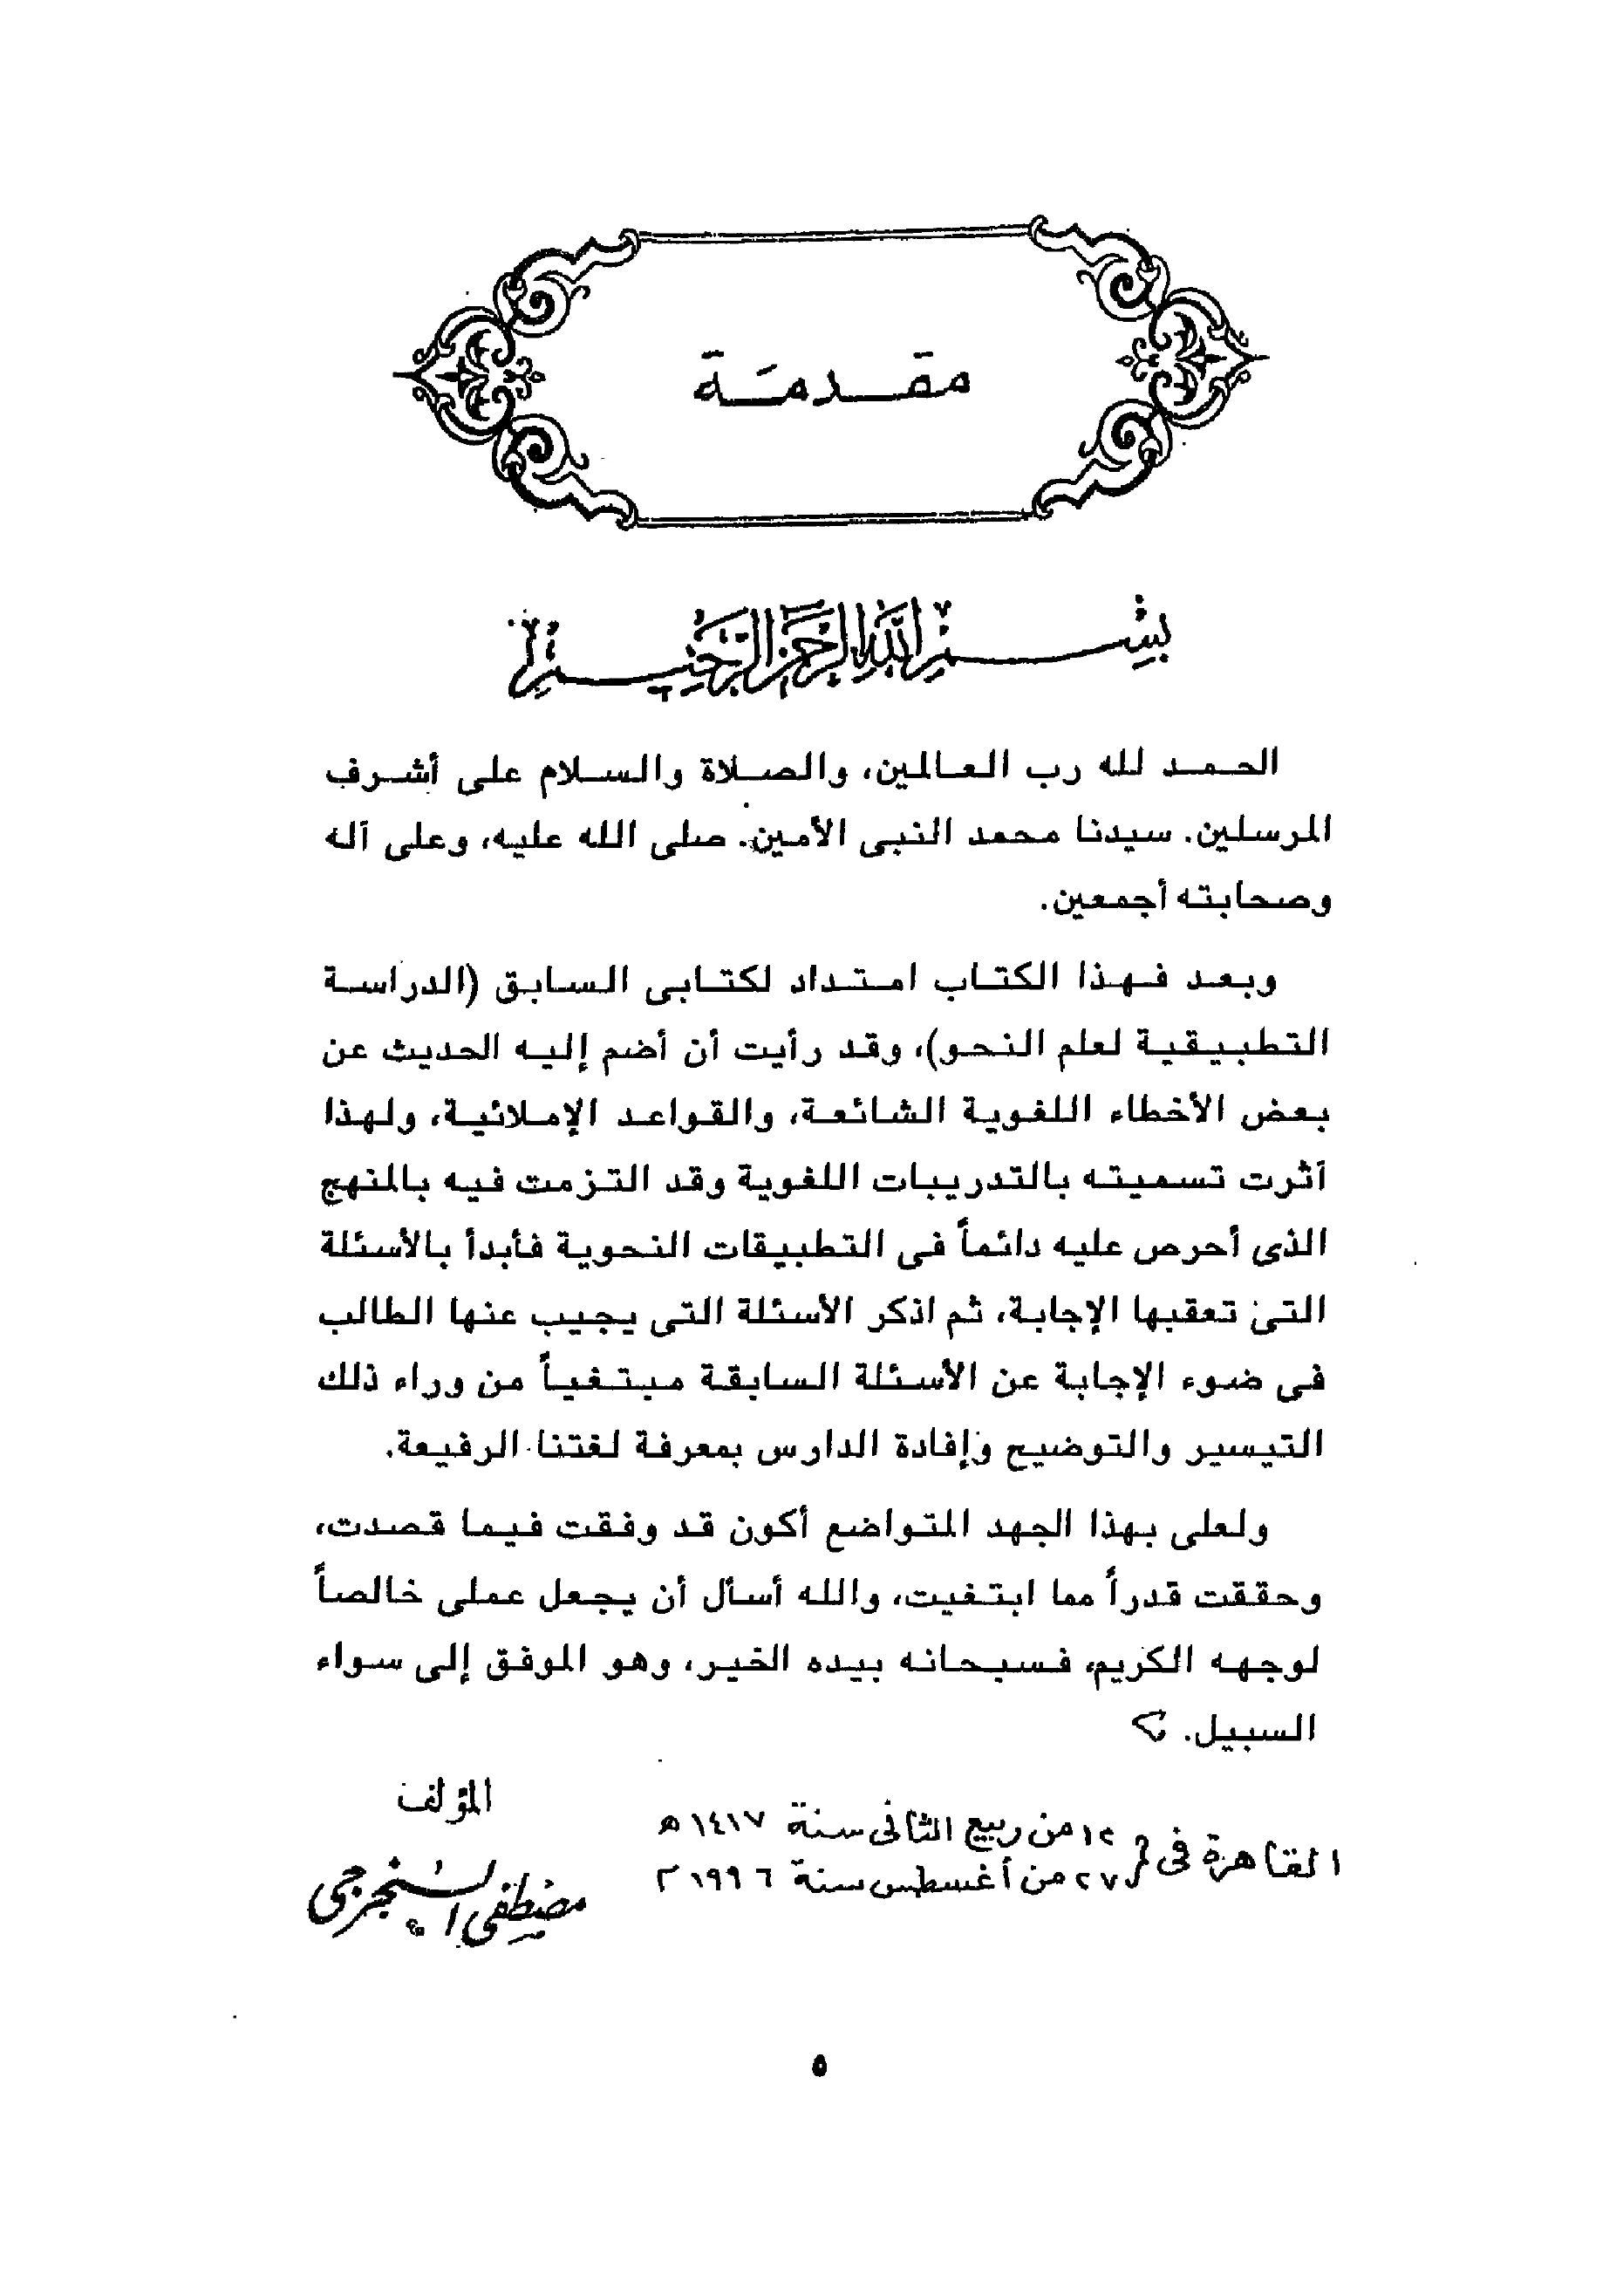 مقدمة
بسم الله الرحمن الرحيم
الحمد لله رب العالمين، والصلاة والسلام على أشرف
المرسلين. سيدنا محمد النبى الأمين. صلى الله عليه، وعلى آله
وصحابته أجمعين.
وبعد فهذا الكتاب امتداد لكتابى السابق (الدراسة
التطبيقية لعلم النحو)، وقد رأيت أن أضم إليه الحديث عن
بعض الأخطاء اللغوية الشائعة، والقواعد الإملائية، ولهذا
آثرت تسميته بالتدريبات اللغوية وقد التزمت فيه بالمنهج
الذى أحرص عليه دائماً فى التطبيقات النحوية فأبدأ بالأسئلة
التى تعقبها الإجابة، ثم اذكر الأسئلة التى يجيب عنها الطالب
فى ضوء الإجابة عن الأسئلة السابقة مبتغياً من وراء ذلك
التيسير والتوضيح وإفادة الدارس بمعرفة لغتنا الرفيعة.
ولعلى بهذا الجهد المتواضع أكون قد وفقت فيما قصدت،
وحققت قدراً مما ابتغيت، والله أسأل أن يجعل عملى خالصاً
لوجهه الكريم، فسبحانه بيده الخير، وهو الموفق إلى سواء
السبيل.
المؤلف
القاهرة فى
١٢ من ربيع الثانى سنة ١٤١٧ هـ
٢٧ من أغسطس سنة ١٩٩٦ م
مصطفى السنجرجى
٥